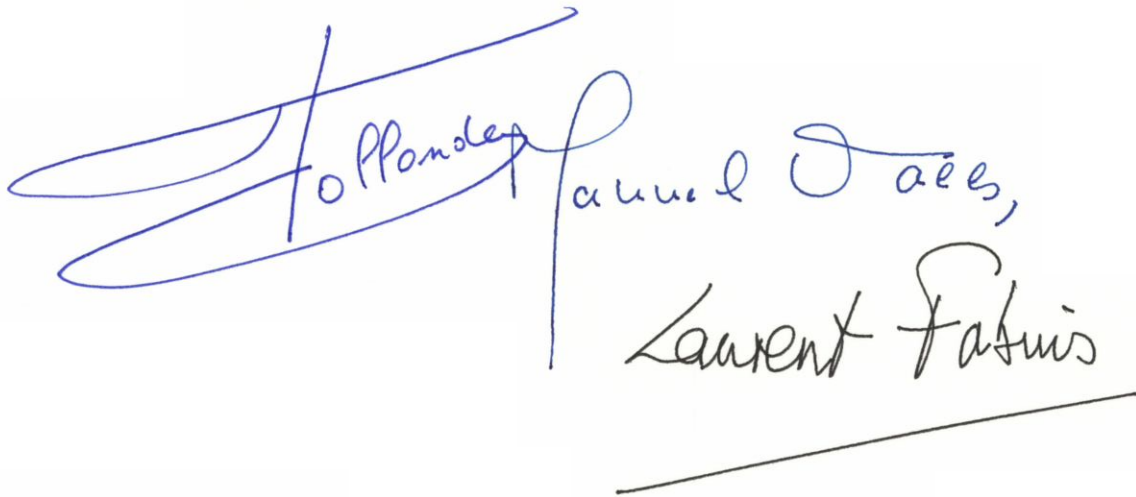 Hollande
Manuel Valls,
Laurent Fabius